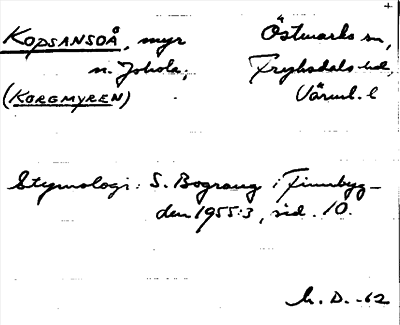 KOPSANSOÅ, myr
n. Johola;
(KORGMYREN)
Östmarks sn,
Fryksdals hd,
Värml. l
Etymologi: S. Bograng i Finnbyg-
den 1955:3, sid. 10.
h. D. -62